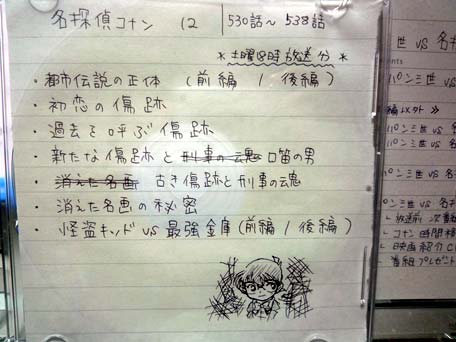 名探偵コナン 12 530話～538話
＊土曜8時放送分＊
・都市伝説の正体 (前編/後編)
・初恋の傷跡
・過去を呼ぶ傷跡
・新たな傷跡と刑事の魂口笛の男
・消えた名画 古き傷跡と刑事の魂
・消えた名画の秘密
・怪盗キッドvs最強金庫(前編/後編)
世 vs 名
パン三世 vs 名
編以外 》
パン三世 vs 名
パン三世 vs 名
ン三世 vs 名
ン三世 vs 名
コナン時間
映画紹介 C
番組プレゼント